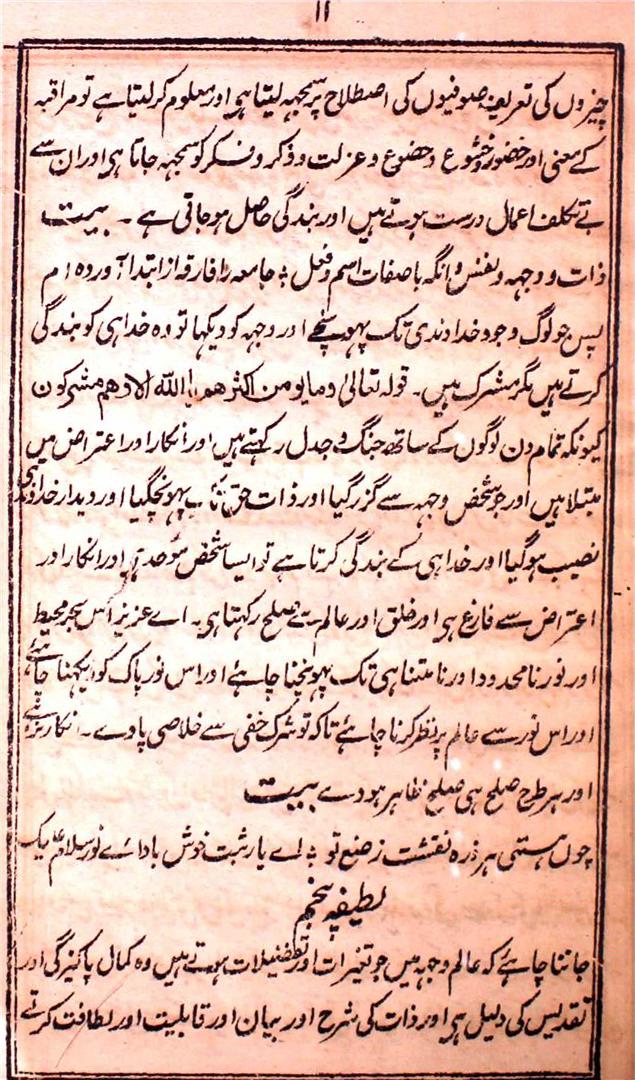 ۱۱
چیزوں کی تعریف صوفیوں کی اصطلاح پر سمجہہ لیتا ہی اور معلوم کر لیتا ہے تو مراقبہ
کے معنی اور حضور و خشوع و خضوع و عزلت و ذکر و فکر کو سمجہہ جاتا ہی اور ان سے
بے تکلف اعمال درست ہوتے ہیں اور بندگی حاصل ہو جاتی ہے ۔ بیت
ذات و وجہہ و نفس وانگہ باصفات اسم و فعل ؛ جامعہ را فارقہ از ابتدا آوردہ ام
پس جو لوگ وجود خداوندی تک پہونچے اور وجہہ کو دیکہا تو وہ خدا ہی کو بندگی
کرتے ہیں مگر مشرک ہیں ۔ قولہ تعالیٰ وما یومن اکثرھم باللہ الا وھم مشرکون
کیونکہ تمام دن لوگوں کے ساتھ جنگ و جدل رکہتے ہیں اور انکار اور اعتراض میں
مبتلا ہیں اور جو شخص وجہہ سے گزر گیا اور ذات حق تک پہونچگیا اور دیدار خداوندی
نصیب ہو گیا اور خدا ہی کے بندگی کرتا ہے تو ایسا شخص موحد ہی اور انکار اور
اعتراض سے فارغ ہی اور خلق اور عالم سے صلح رکہتا ہی ۔ اے عزیز اس بحر محیط
اور نور نامحدود اور نامتناہی تک پہونچنا چاہئے اور اس نور پاک کو دیکہنا چاہئے
اور اس نور سے عالم پر نظر کرنا چاہئے تاکہ تو شرک خفی سے خلاصی پاوے ۔ انکار
اور ہر طرح صلح ہی صلح ظاہر ہووے بیت
چوں ہستی ہر ذرہ نقشت ز صنع تو ؛ اے یار شبت خوش باد اے نور سلام علیک
لطیفہ پنجم
جاننا چاہئے کہ عالم وجہہ میں جو تغیرات اور تفضیلات ہوتے ہیں وہ کمال پاکیزگی اور
تقدیس کی دلیل ہی اور ذات کی شرح اور بیان اور قابلیت اور لطافت کرتے